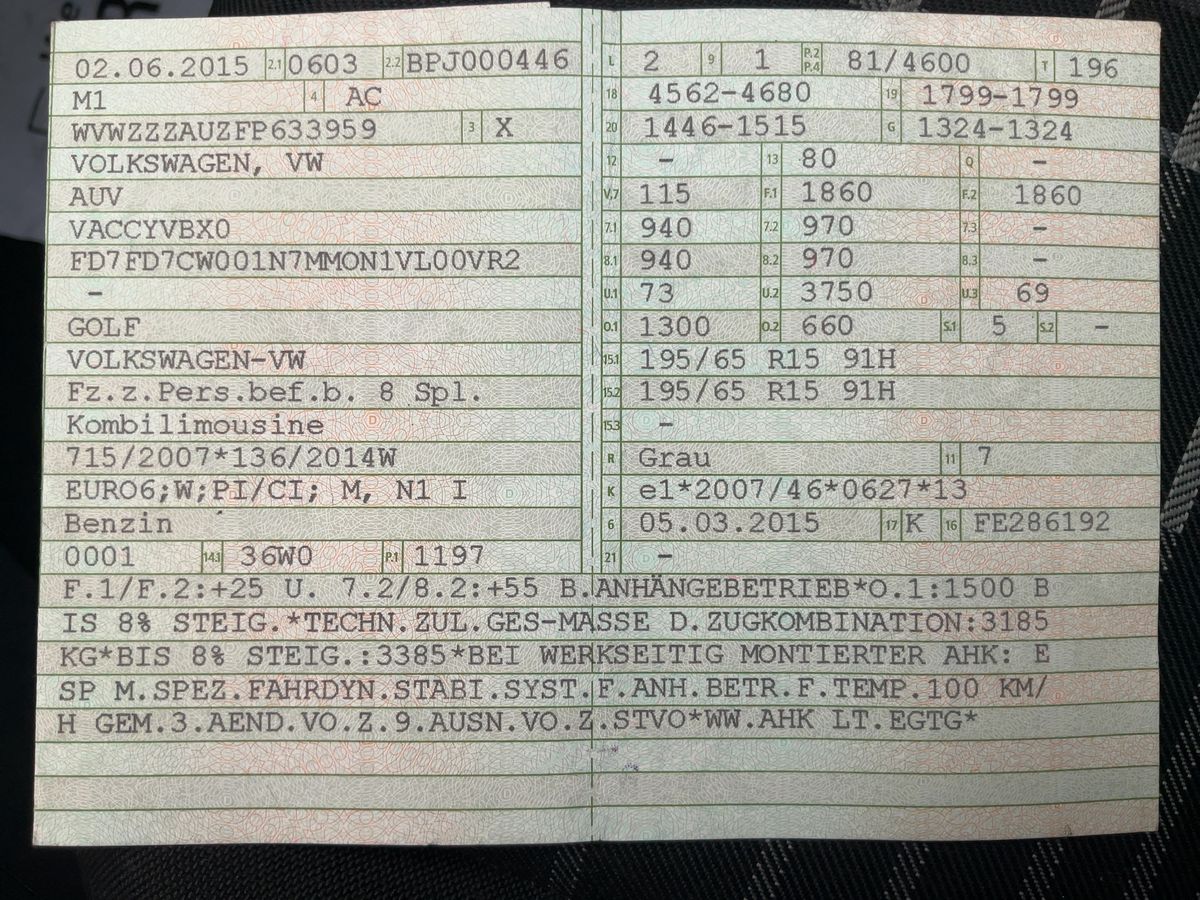 02.06.2015 2.1 0603 2.2 BPJ000446
M1 4 AC
WVWZZZAUZFP633959 3 X
VOLKSWAGEN, VW
AUV
VACCYVBX0
FD7FD7CW001N7MMON1VL00VR2
–
GOLF
VOLKSWAGEN-VW
Fz.z.Pers.bef.b. 8 Spl.
Kombilimousine
715/2007*136/2014W
EURO6;W;PI/CI; M, N1 I
Benzin
0001 14.1 36W0 P.1 1197
L 2 9 1 P.2 P.4 81/4600 T 196
18 4562-4680 19 1799-1799
20 1446-1515 G 1324-1324
12 – 13 80 Q –
V.7 115 F.1 1860 F.2 1860
7.1 940 7.2 970 7.3 –
8.1 940 8.2 970 8.3 –
U.1 73 U.2 3750 U.3 69
O.1 1300 O.2 660 S.1 5 S.2 –
15.1 195/65 R15 91H
15.2 195/65 R15 91H
15.3 –
R Grau 11 7
K e1*2007/46*0627*13
6 05.03.2015 17 K 16 FE286192
21 –
F.1/F.2:+25 U. 7.2/8.2:+55 B.ANHÄNGEBETRIEB*O.1:1500 B
IS 8% STEIG.*TECHN.ZUL.GES-MASSE D.ZUGKOMBINATION:3185
KG*BIS 8% STEIG.:3385*BEI WERKSEITIG MONTIERTER AHK: E
SP M.SPEZ.FAHRDYN.STABI.SYST.F.ANH.BETR.F.TEMP.100 KM/
H GEM.3.AEND.VO.Z.9.AUSN.VO.Z.STVO*WW.AHK LT.EGTG*